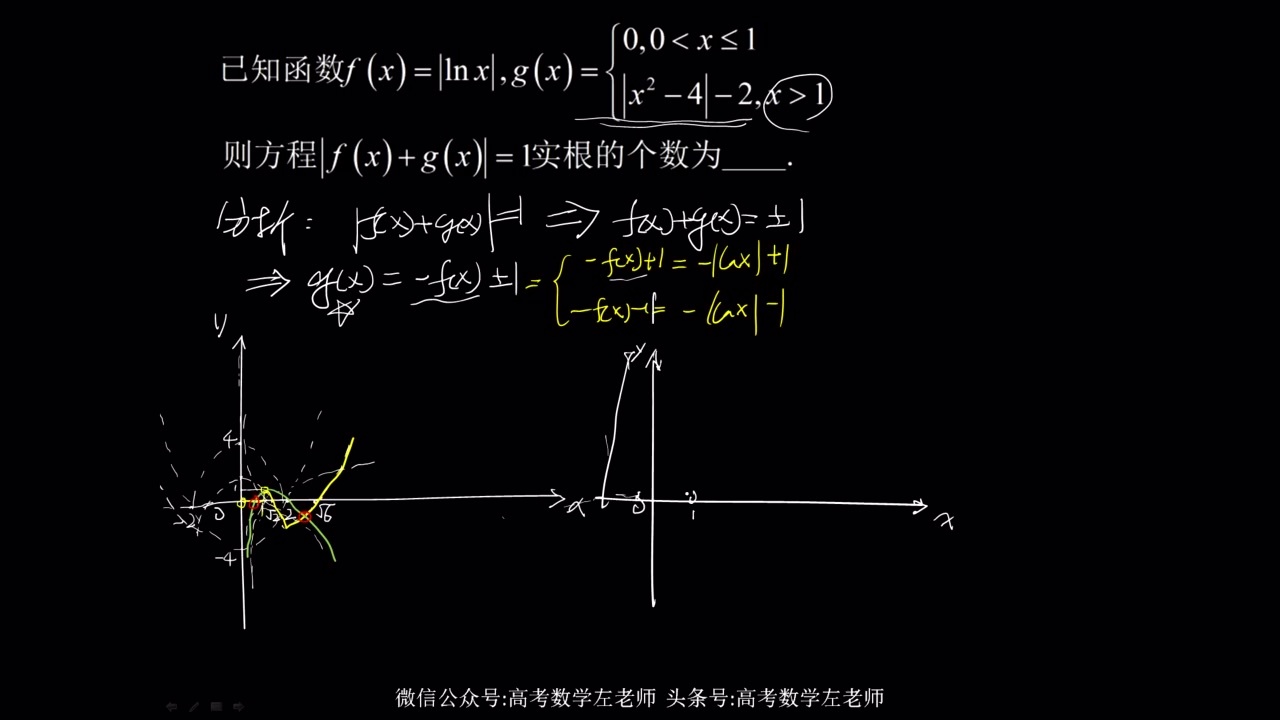 已知函数f(x)=|ln x|,g(x)={0,0<x≤1
|x²-4|-2,x>1
则方程|f(x)+g(x)|=1实根的个数为____.
分析: |f(x)+g(x)|=1 ⟹ f(x)+g(x)=±1
⟹ g(x)=-f(x)±1={-f(x)+1=-|lnx|+1
-f(x)-1=-|lnx|-1
y
4
-2 0 1 √2 2 √6 x
-4
y
0 1 x
微信公众号:高考数学左老师 头条号:高考数学左老师